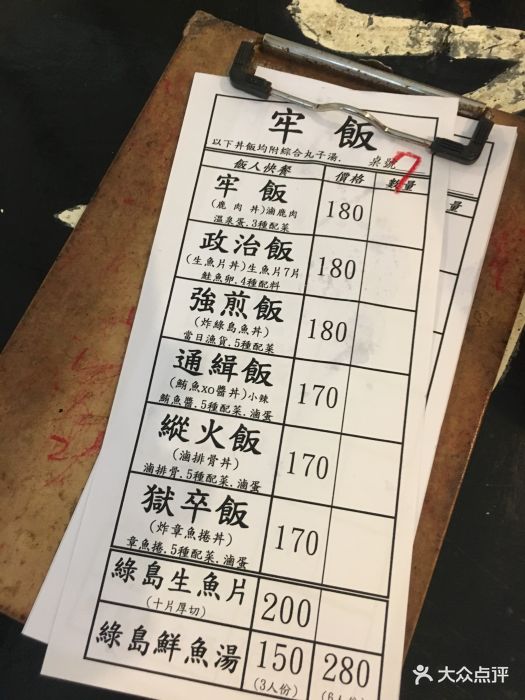 牢飯
以下丼飯均附綜合丸子湯. 桌號 7
飯人快餐 價格 數量
牢飯 180
(鹿肉丼)滷鹿肉
溫泉蛋.3種配菜
政治飯 180
(生魚片丼)生魚片7片
鮭魚卵.4種配料
強煎飯 180
(炸綠島魚丼)
當日漁貨.5種配菜
通緝飯 170
(鮪魚xo醬丼)小辣
鮪魚醬.5種配菜.滷蛋
縱火飯 170
(滷排骨丼)
滷排骨.5種配菜.滷蛋
獄卒飯 170
(炸章魚捲丼)
章魚捲.5種配菜.滷蛋
綠島生魚片 200
(十片厚切)
綠島鮮魚湯 150 280
(3人份) (6人份)
量
大众点评